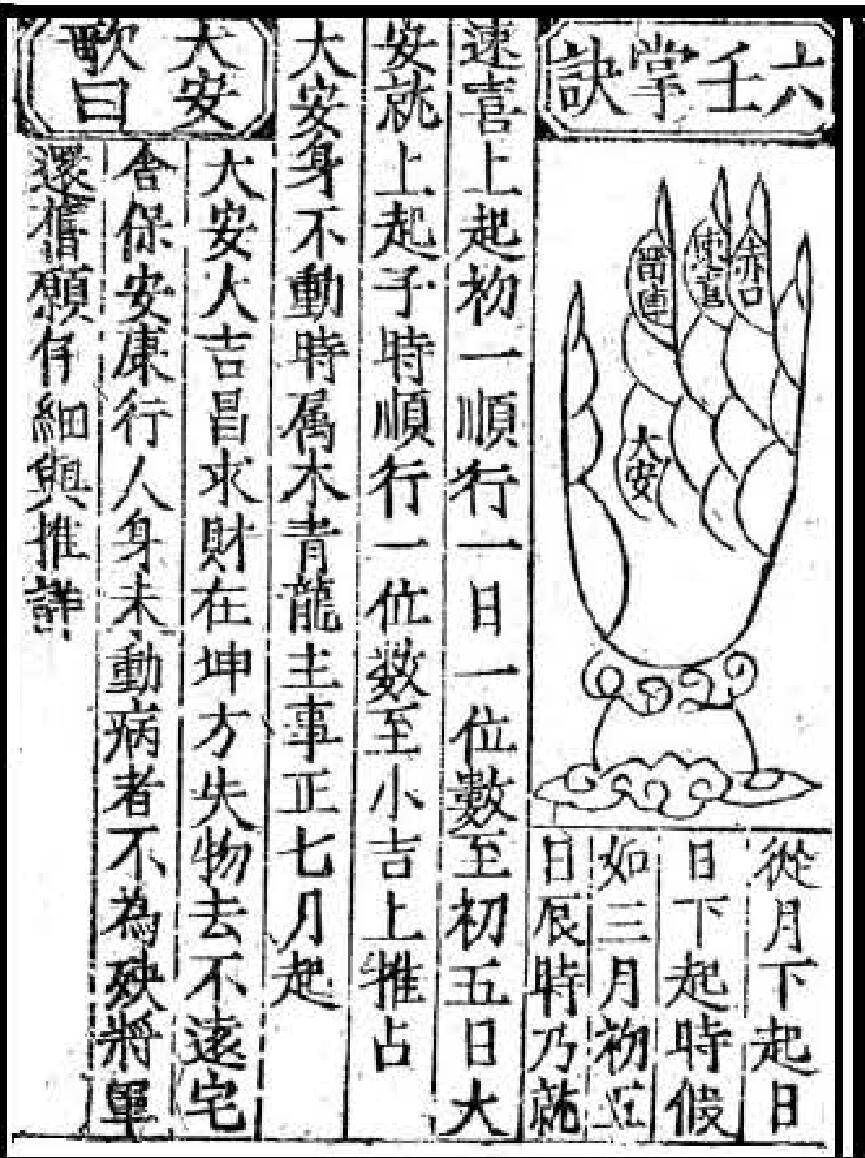 六壬掌訣
留連
速喜
赤口
大安
從月下起日
日下起時假
如三月初五
日辰時乃就
速喜上起初一順行一日一位數至初五日大
安就上起子時順行一位数至小吉上推占
大安身不動時属木青龍主事正七月起
大安
歌曰
大安大吉昌求財在坤方失物去不遠宅
舍保安康行人身未動病者不為殃將軍
還舊願仔細與推詳